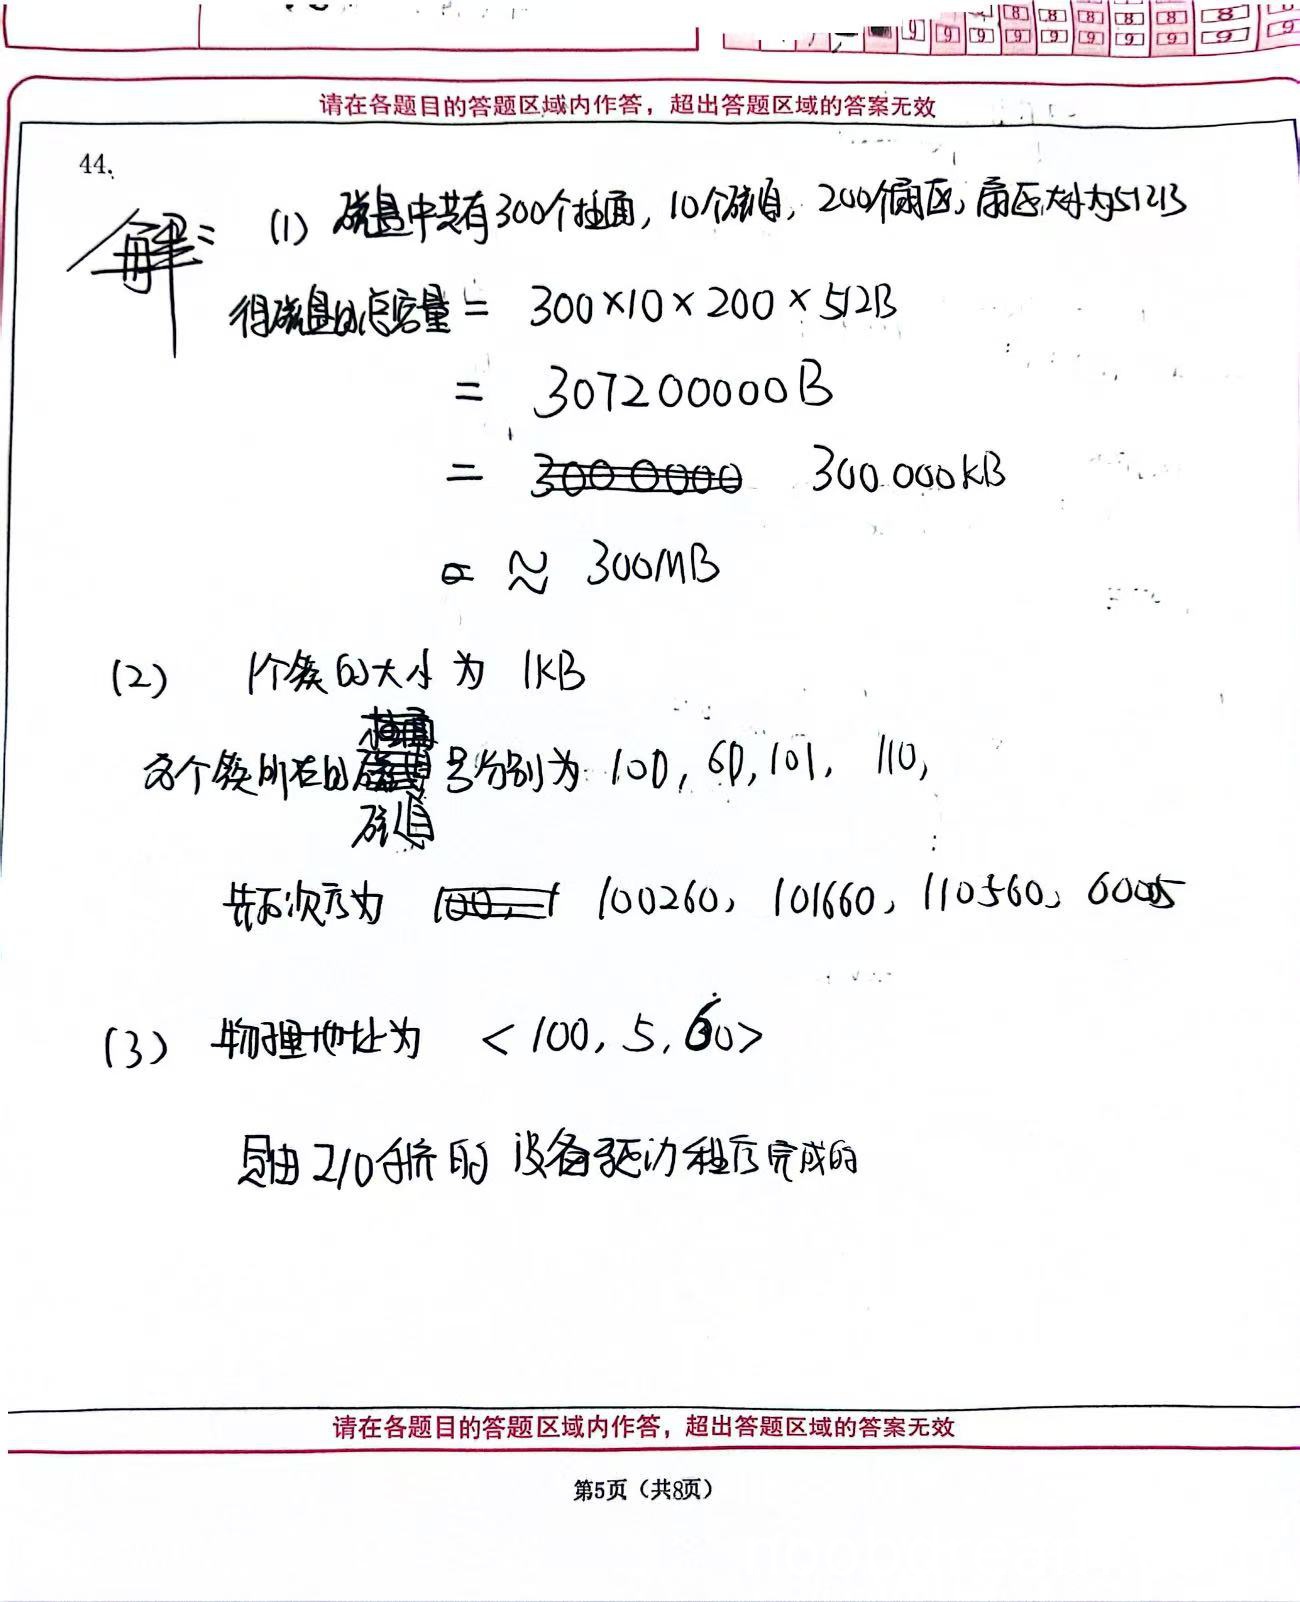 8 8 8 8 8 8
9 9 9 9 9 9 9 9 9
请在各题目的答题区域内作答，超出答题区域的答案无效
44.
解： (1) 磁盘中共有300个柱面，10个磁道，200个扇区，扇区大小为512B
得磁盘的总容量 = 300×10×200×512B
= 307200000B
= 3000000 300000KB
= ≈ 300MB
(2) 1个簇的大小为 1KB
柱面
各个簇所在的 号分别为 100, 60, 101, 110,
磁道
共不次序为 100, 1 100260, 101660, 110560, 60005
(3) 物理地址为 <100, 5, 60>
是由I/O系统的 设备驱动程序完成的
请在各题目的答题区域内作答，超出答题区域的答案无效
第5页（共8页）